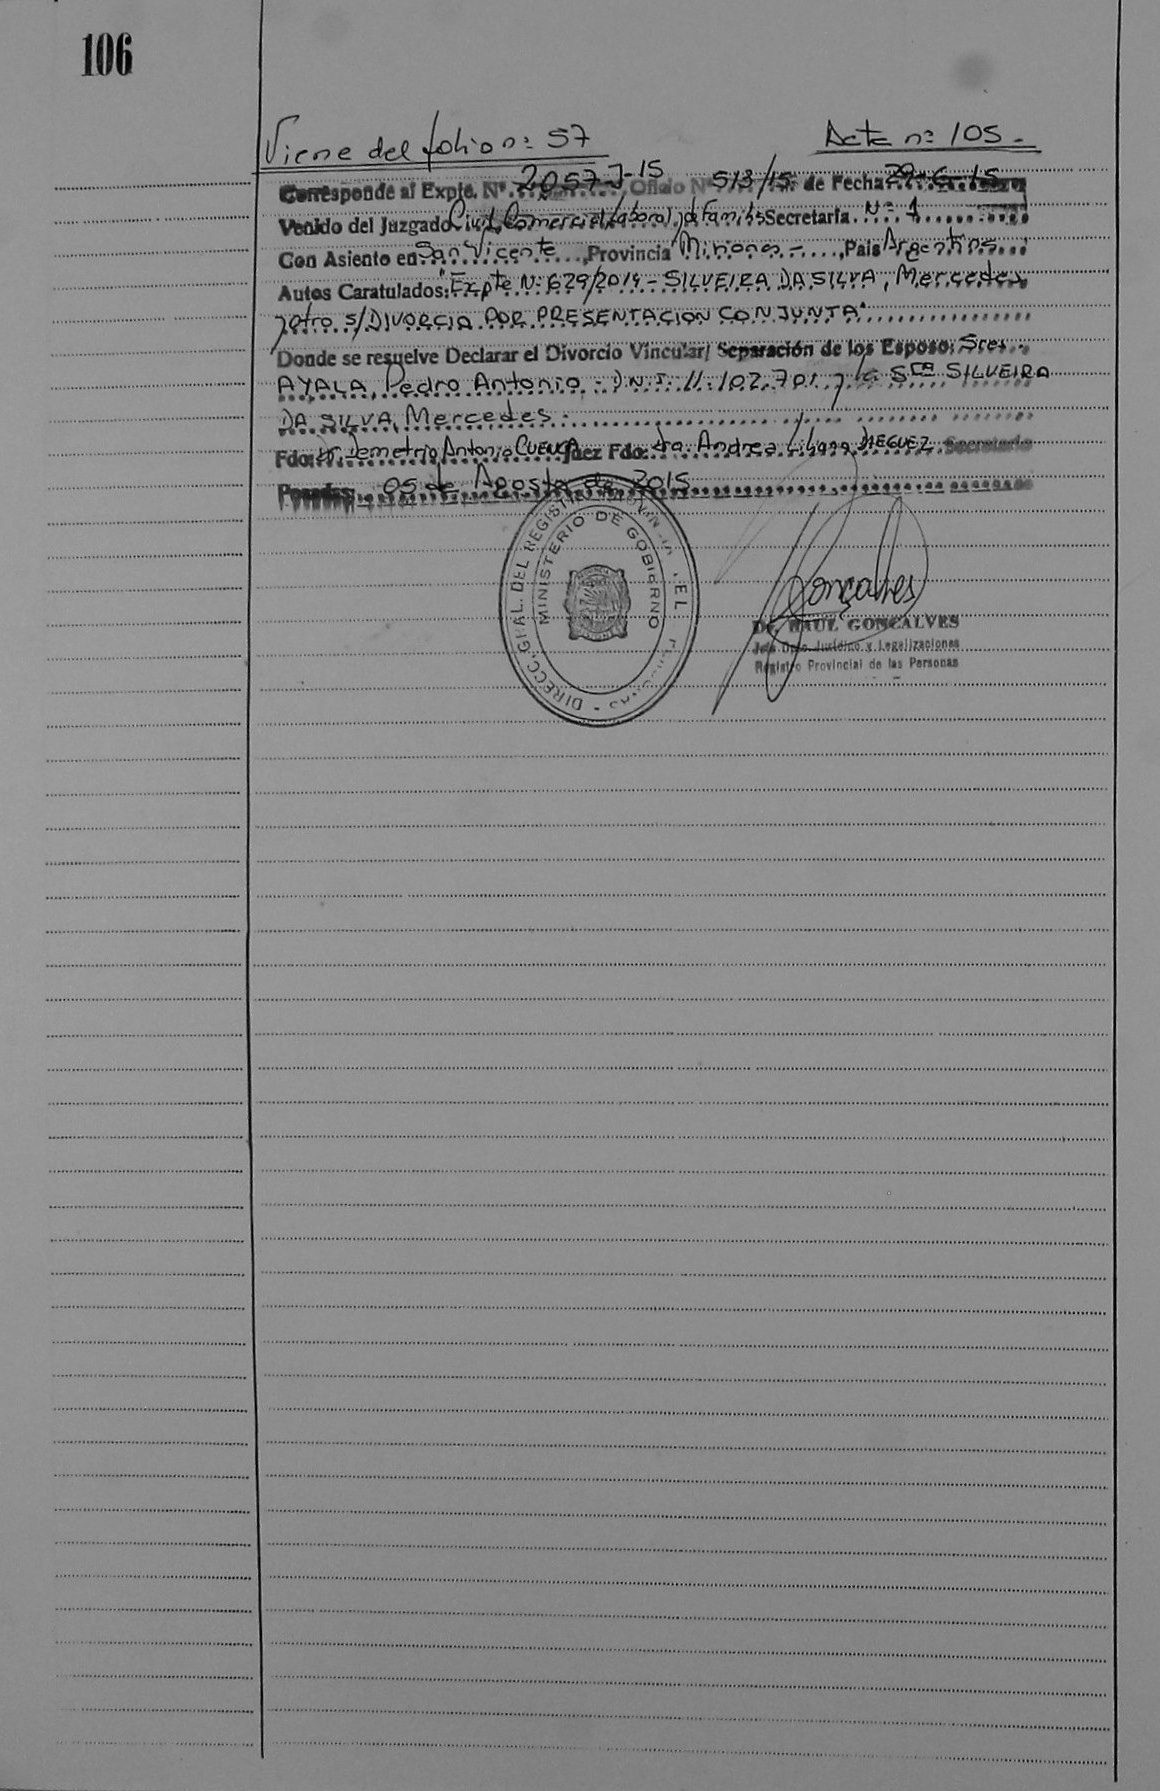 106
Viene del folio nº 57
Acta nº 105.-
Corresponde al Expte. Nº. 2057-J-15, Oficio Nº 513/15. de Fecha 29-6-15
Venido del Juzgado Civil, Comercial, Laboral y de Familia Secretaría. Nº 1
Con Asiento en San Vicente, Provincia Misiones.-, País Argentina
Autos Caratulados: "Expte Nº 629/2014 - SILVEIRA DA SILVA, Mercedes
y otro s/ DIVORCIA POR PRESENTACION CONJUNTA"
Donde se resuelve Declarar el Divorcio Vincular/ Separación de los Esposo: Sres.
AYALA, Pedro Antonio - D.N.I. 11.102.701 y la Sra SILVEIRA
DA SILVA, Mercedes.
Fdo: Dr. Demetrio Antonio CUENCA Juez Fdo: Dra. Andrea Liliana DIEGUEZ Secretario
Posadas, 05 de Agosto de 2015
DIRECC. GRAL. DEL REGISTRO PROVINCIAL DE L PERSONAS
MINISTERIO DE GOBIERNO
Gonçalves
Dr. RAUL GONCALVES
Jefe Dpto. Jurídico y Legalizaciones
Registro Provincial de las Personas